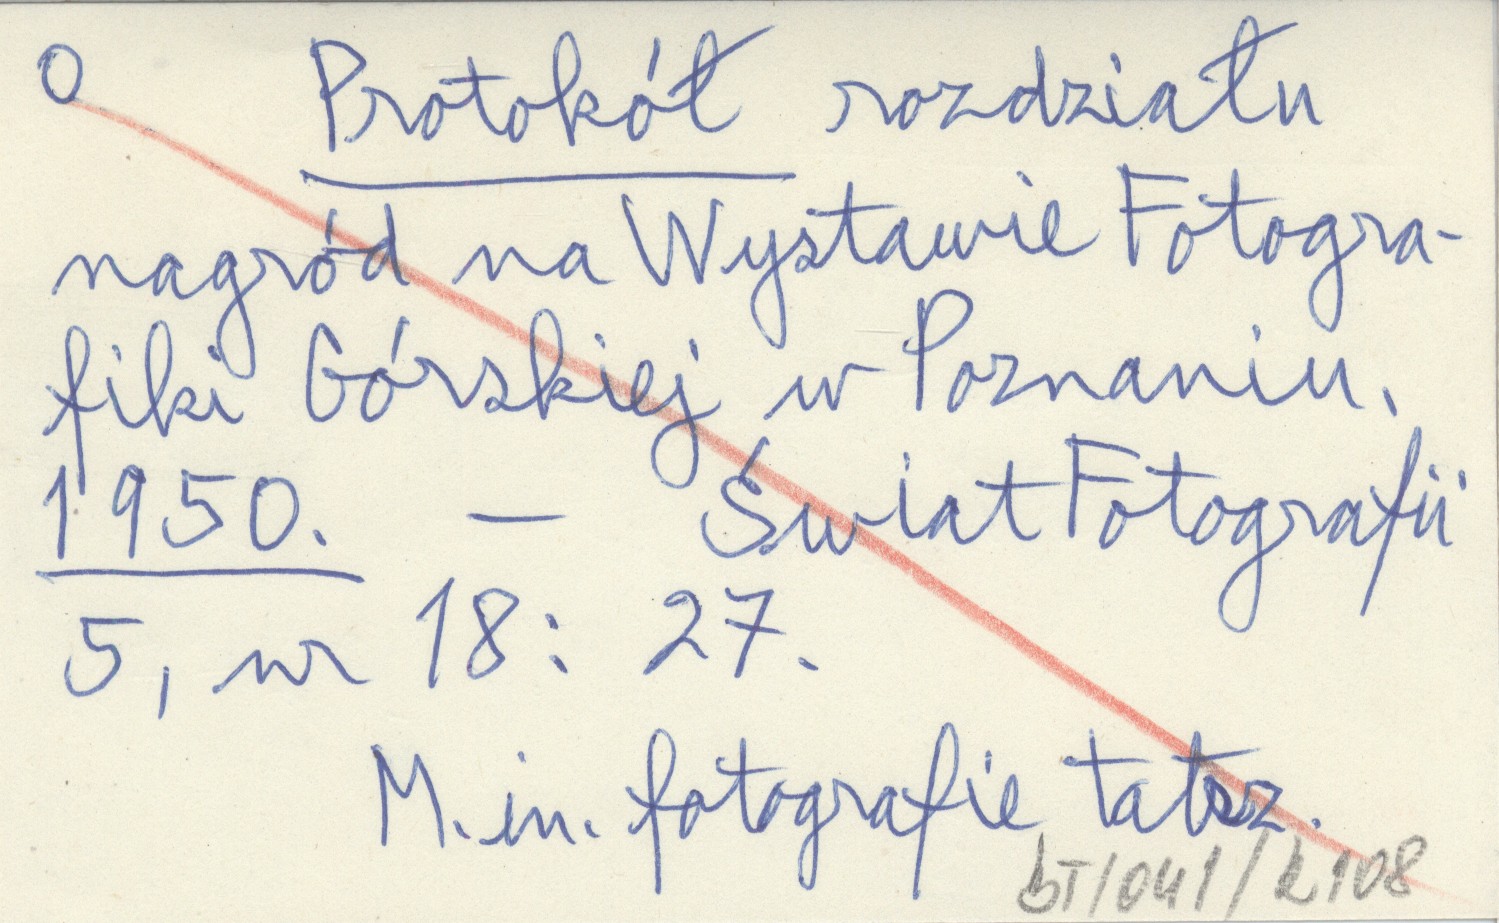 O Protokół rozdziału
nagród na Wystawie Fotogra-
fiki Górskiej w Poznaniu.
1950. — Świat Fotografii
5, nr 18: 27.
M. in. fotografie tatrz.
bT/041/2108